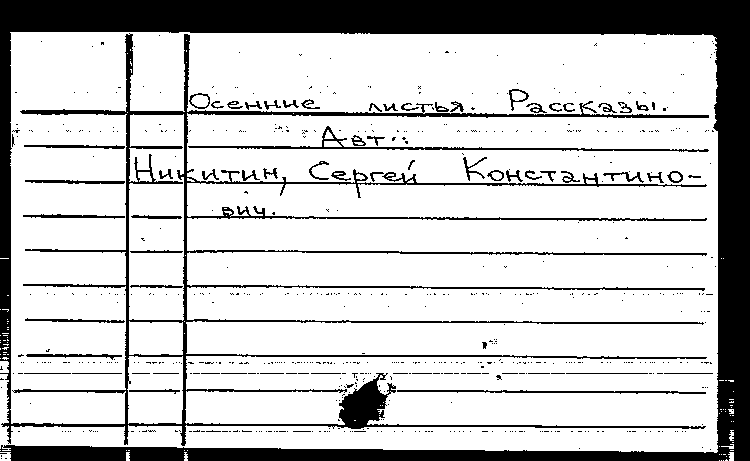 Осенние листья. Рассказы.
Авт.:
Никитин, Сергей Константино-
вич.